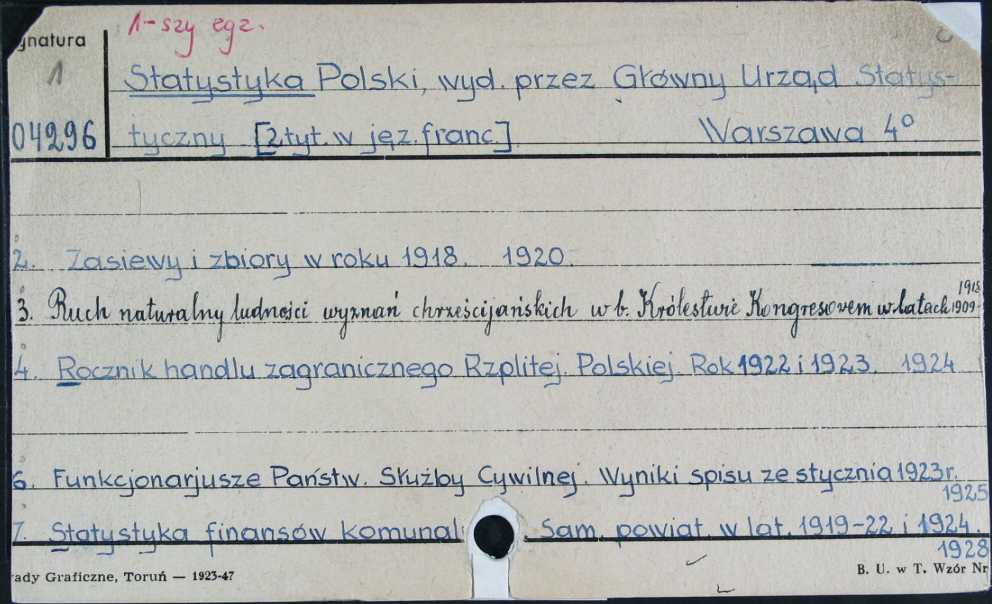 1-szy egz.
gnatura
1
Statystyka Polski, wyd. przez Główny Urząd Statys-
04296 tyczny [2 tyt. w jęz. franc.] Warszawa 4º
2. Zasiewy i zbiory w roku 1918. 1920.
1915
3. Ruch naturalny ludności wyznań chrześcijańskich w b. Królestwie Kongresowem w latach 1909-
4. Rocznik handlu zagranicznego Rzplitej. Polskiej. Rok 1922 i 1923. 1924
6. Funkcjonarjusze Państw. Służby Cywilnej. Wyniki spisu ze stycznia 1923 r.
1925
7. Statystyka finansów komunal Sam. powiat. w lat. 1919-22 i 1924.
1928
ady Graficzne, Toruń — 1923-47 B. U. w T. Wzór Nr